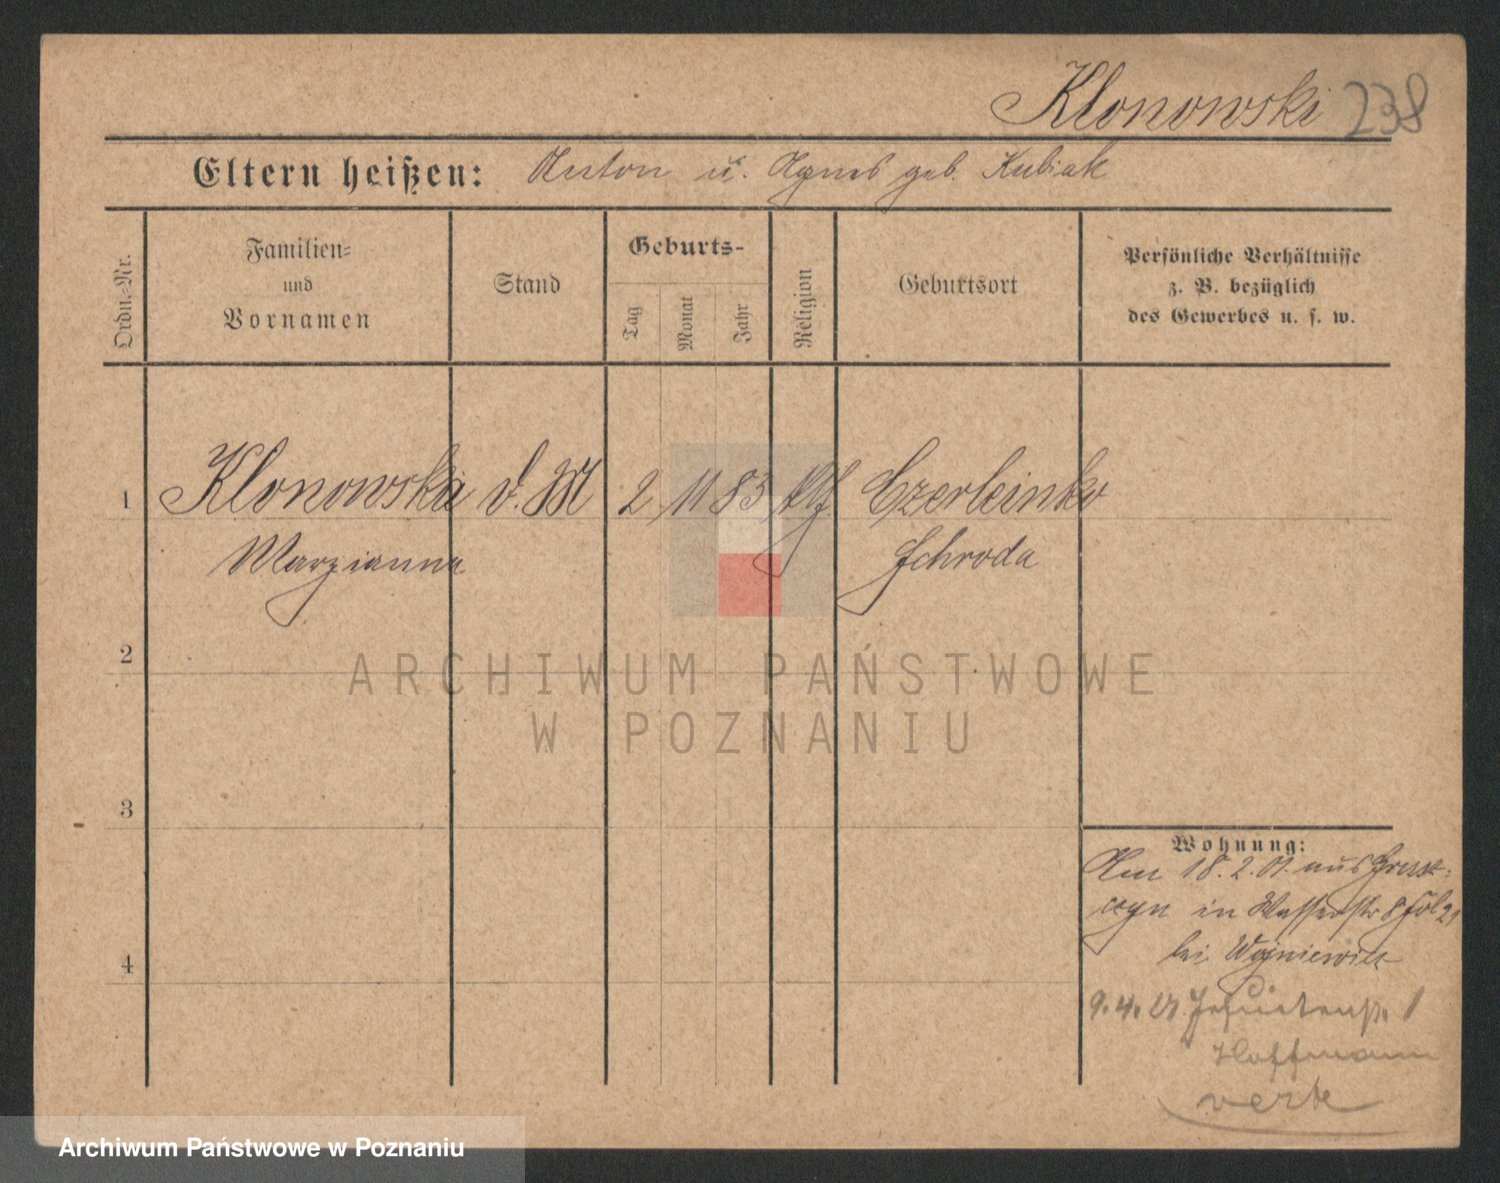 Klonowski 238
Eltern heißen: Anton u. Agnes geb. Kubiak
Ordn.-Nr.
Familien-
und
Vornamen
Stand
Geburts-
Tag
Monat
Jahr
Religion
Geburtsort
Persönliche Verhältnisse
z. B. bezüglich
des Gewerbes u. s. w.
1 Klonowska d. M 2 11 83 Czerleinko
Maryianna Schroda
2
ARCHIWUM PAŃSTWOWE
W POZNANIU
3
Wohnung:
Am 18.2.01. aus
in Wasserstr 8
bei Wojniewicz
9.4. Jesuitenstr. 1
Hoffmann
verte
4
Archiwum Państwowe w Poznaniu